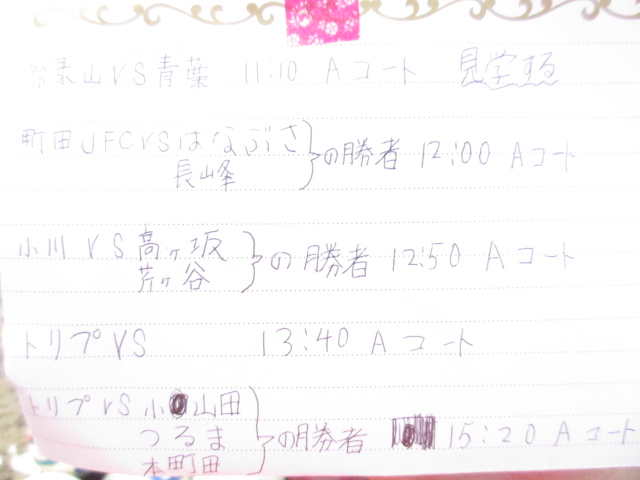 素山VS青葉 11:10 Aコート 見学する
町田JFCVSはなぶさ
長山峰 の勝者 12:00 Aコート
小川VS高ヶ坂
芹ヶ谷 の勝者 12:50 Aコート
トリプVS 13:40 Aコート
トリプVS小山田
つるま の勝者 15:20 Aコート
本町田